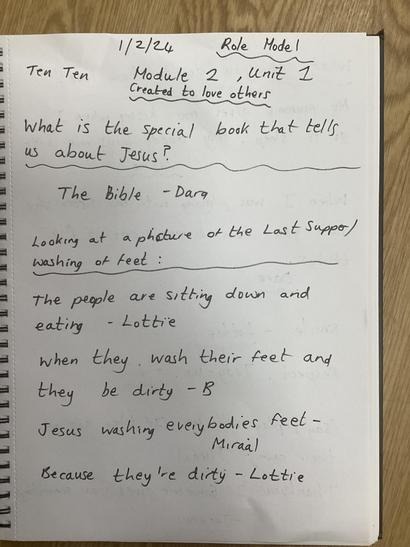 1/2/24 Role Model
Ten Ten Module 2, Unit 1
Created to love others
What is the special book that tells
us about Jesus?
The Bible - Dara
Looking at a photure of the Last Supper/
washing of feet :
The people are sitting down and
eating - Lottie
when they wash their feet and
they be dirty - B
Jesus washing everybodies feet -
Miraal
Because they're dirty - Lottie